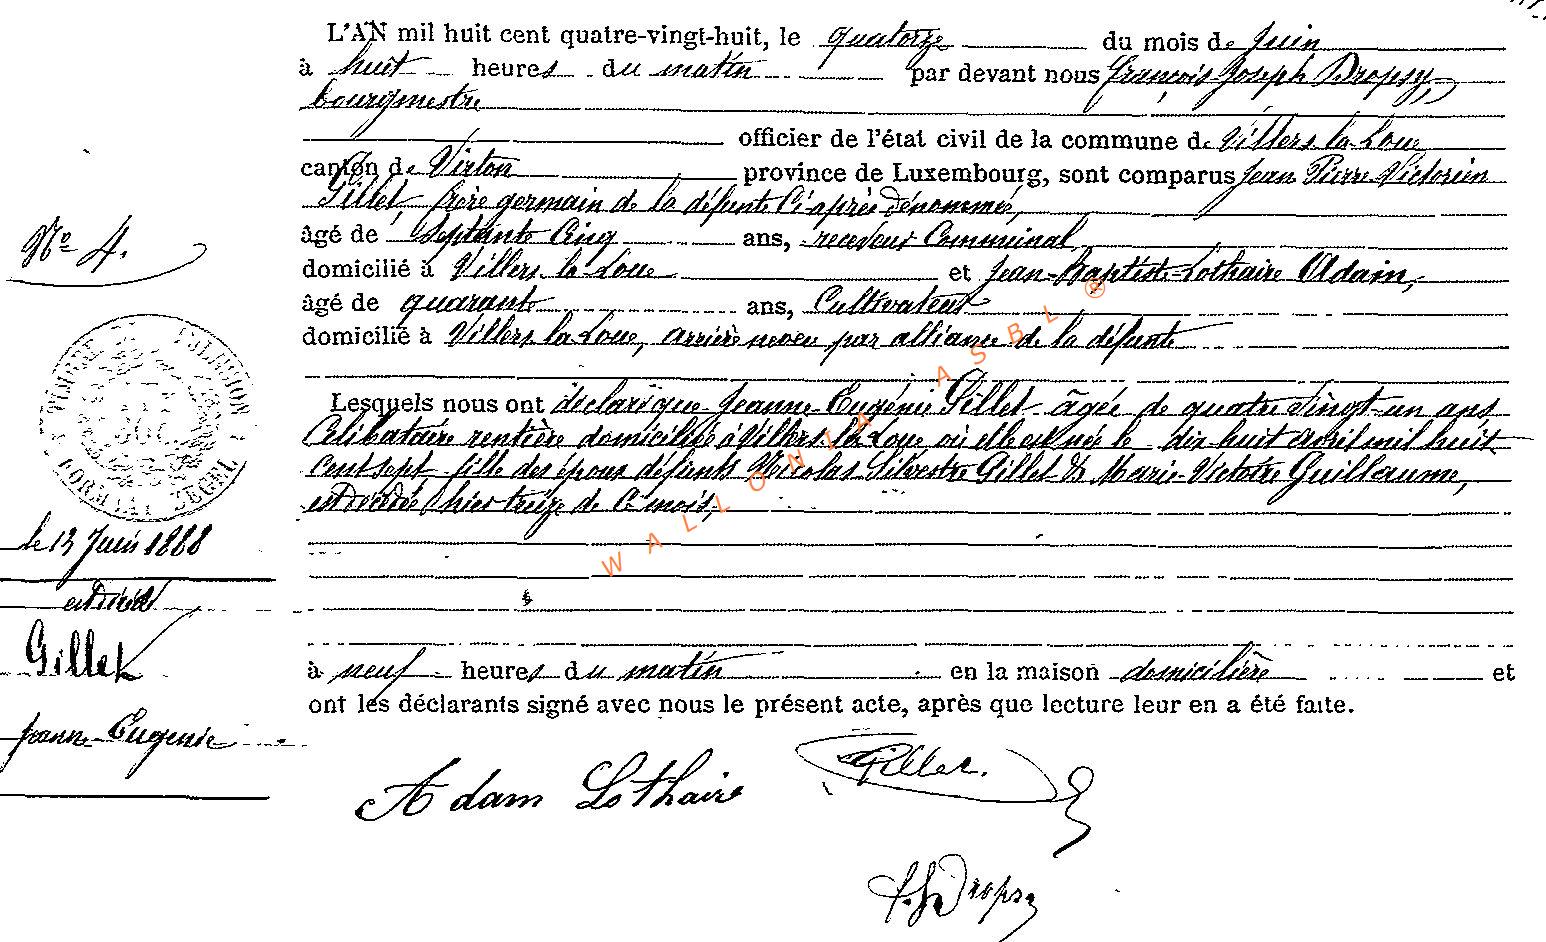 L'AN mil huit cent quatre-vingt-huit, le quatorze du mois de Juin
à huit heures du matin par devant nous François Joseph Dropsy,
bourgmestre
officier de l'état civil de la commune de Villers la Loue
canton de Virton province de Luxembourg, sont comparus Jean Pierre Victorien
Gillet, frère germain de la défunte ci-après dénommée,
âgé de septante cinq ans, receveur communal
domicilié à Villers la Loue et Jean-Baptiste-Lothaire Adam,
âgé de quarante ans, cultivateur
domicilié à Villers la Loue, arrière neveu par alliance de la défunte
Lesquels nous ont déclaré que Jeanne-Eugénie Gillet âgée de quatre vingt-un ans
célibataire rentière domiciliée à Villers la Loue où elle est née le dix huit avril mil huit
cent sept fille des époux défunts Nicolas Silvestre Gillet & Marie-Victoire Guillaume,
est décédée hier treize de ce mois,
à neuf heures du matin en la maison domicilière et
ont les déclarants signé avec nous le présent acte, après que lecture leur en a été faite.
Nº 4.
le 13 Juin 1888
est décédée
Gillet
Jeanne-Eugénie
Adam Lothaire
Gillet.
f. J. Dropsy
WALLONIA ASBL ®